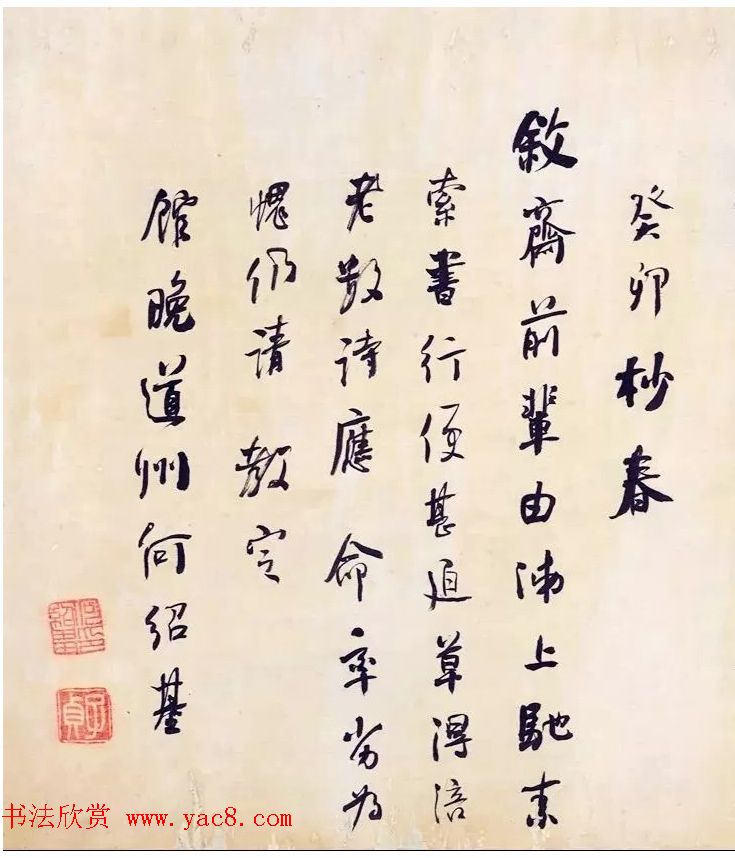 癸卯杪春
敘齋前輩由沛上馳素
索書行便甚迫草得涪
老數詩應 命率劣為
愧仍請 教定
館晚道州何紹基
何紹基印
子貞
书法欣赏 www.yac8.com